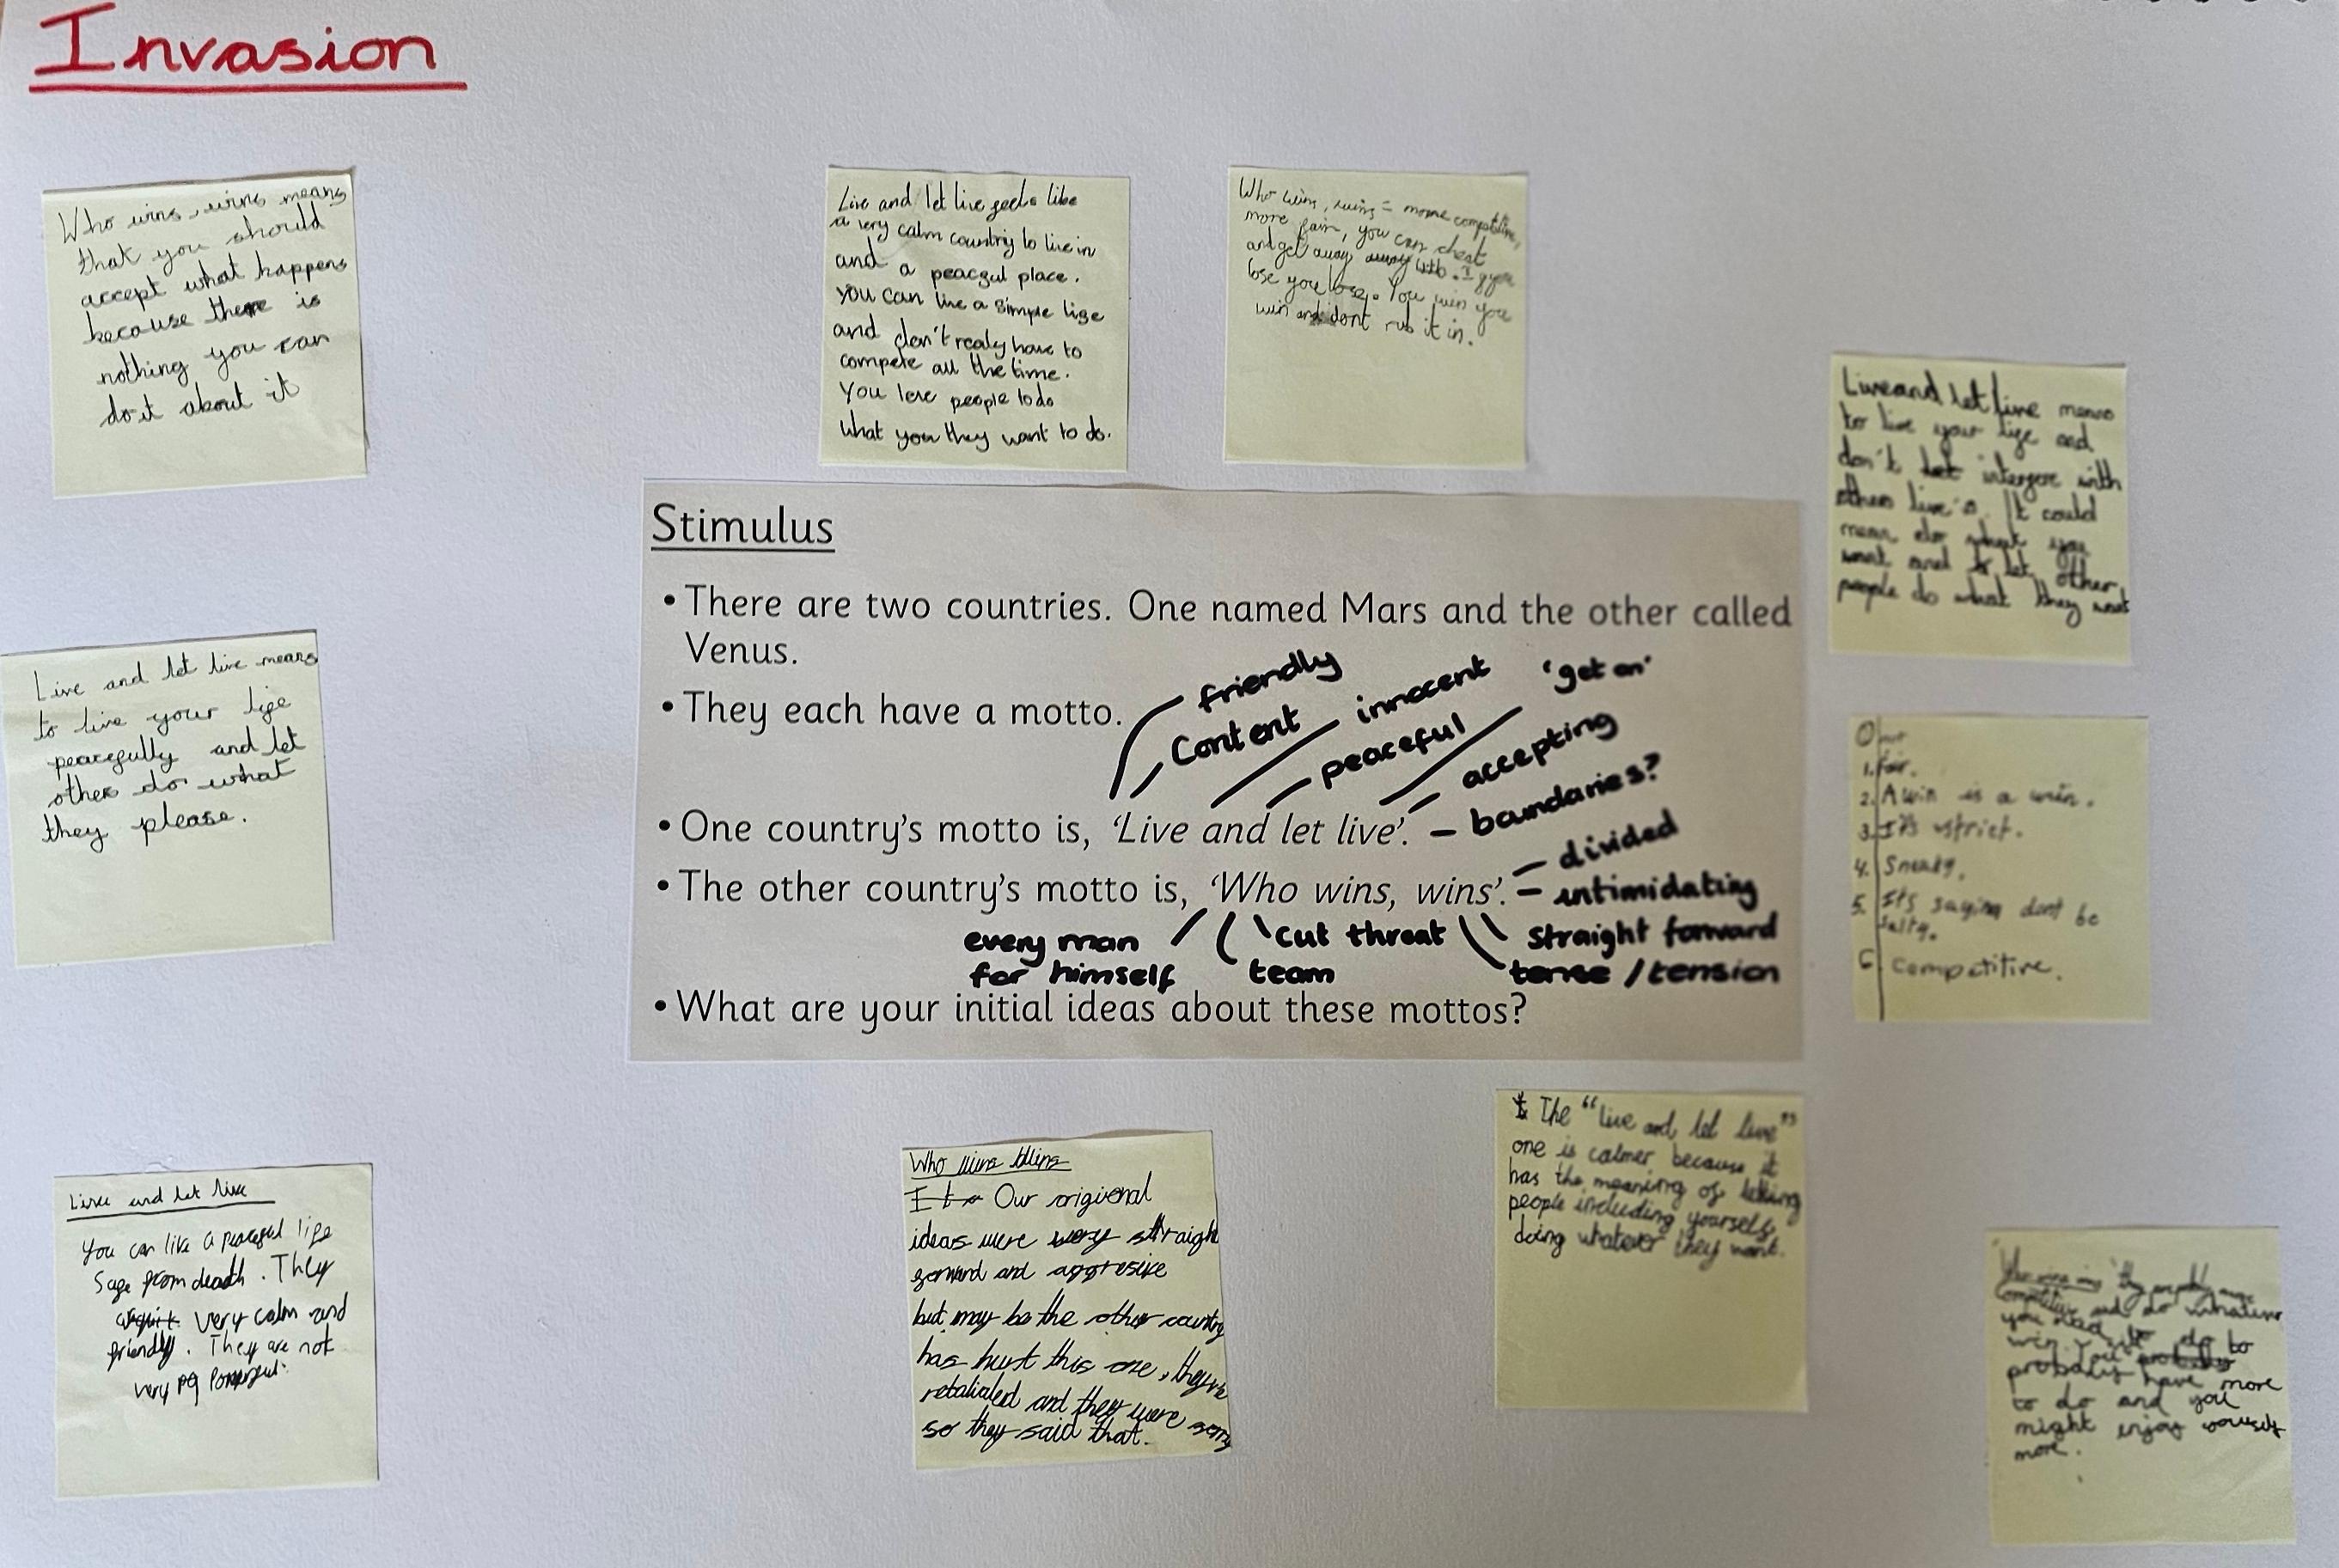 Invasion
Who wins, wins means
that you should
accept what happens
because there is
nothing you can
do it about it
Live and let live feels like
a very calm country to live in
and a peacful place.
you can live a simple life
and don't realy have to
compete all the time.
You let people to do
what you they want to do.
Who wins, wins = more competitive,
more fair, you can cheat
and get away away with. If you
lose you lose. You win you
win and dont rub it in.
Live and let live means
to live your life and
don't let interfere with
others live's. It could
mean do what you
want and to let other
people do what they want
Live and let live means
to live your life
peacefully and let
others do what
they please.
Stimulus
• There are two countries. One named Mars and the other called
Venus.
• They each have a motto.
friendly
content
innocent
peaceful
'get on'
accepting
boundaries?
• One country's motto is, 'Live and let live'.
divided
• The other country's motto is, 'Who wins, wins'.
intimidating
every man
for himself
cut throat
team
straight forward
tense / tension
• What are your initial ideas about these mottos?
1. fair.
2. A win is a win.
3. It's strict.
4. Sneaky.
5. It's saying dont be
salty.
6. competitive.
Live and let live
You can like a peaceful life
safe from death. They
very calm and
friendly. They are not
very
Who wins wins
Our origional
ideas were very straight
forward and aggresive
but may be the other country
has hurt this one, they've
retaliated and they were
so they said that.
The "live and let live"
one is calmer because it
has the meaning of letting
people including yourself,
doing whatever they want.
Who wins wins they
competitive and do whatever
you need to do to
win. You probably
probably have more
to do and you
might enjoy yourself
more.